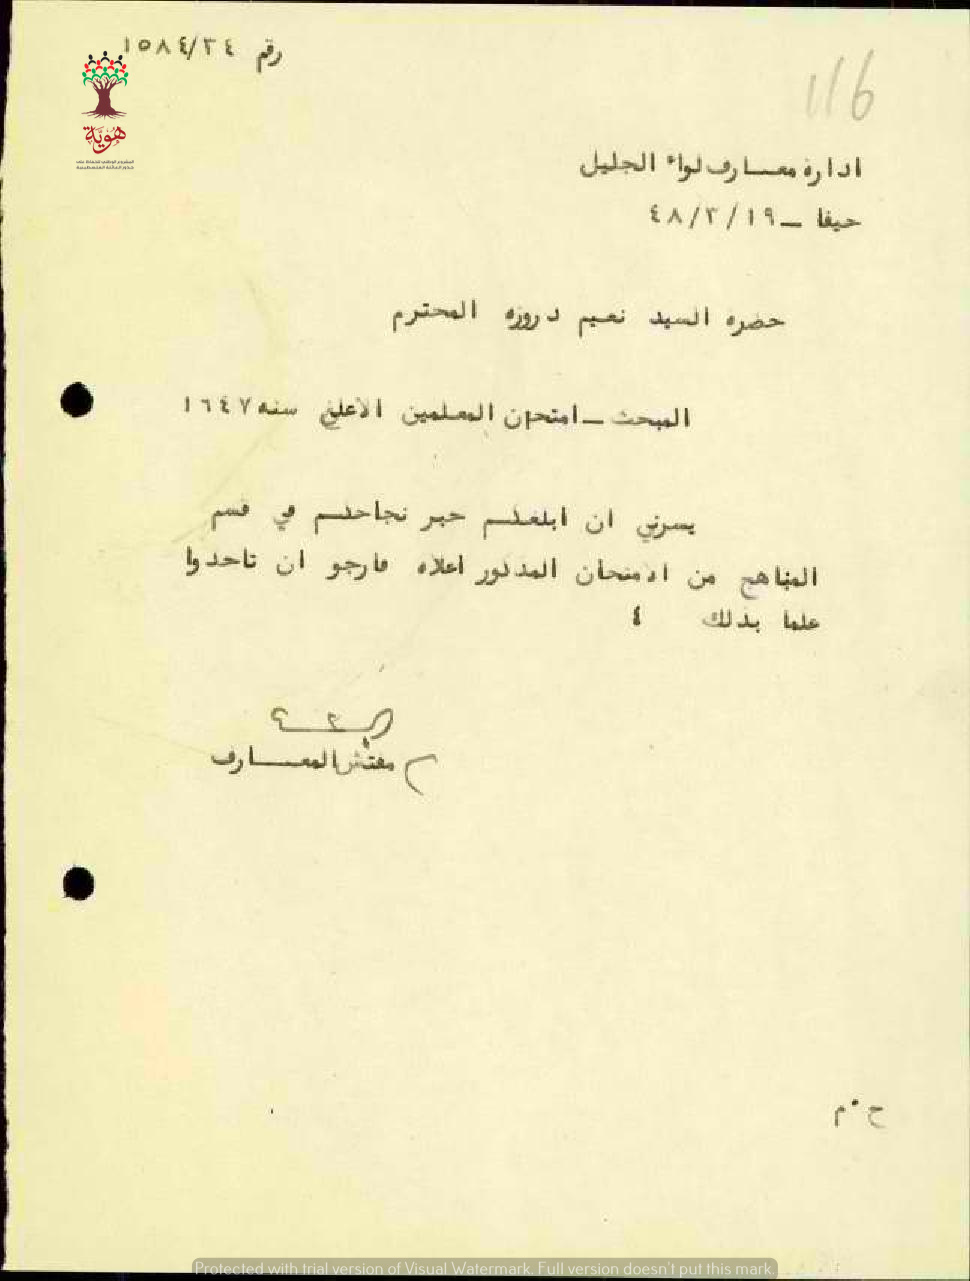 رقم ١٥٨٤/٣٤
116
هوية
المشروع الوطني للحفاظ على
جذور العائلة الفلسطينية
ادارة معـــارف لواء الجليل
حيفا ــ ٤٨/٣/١٩
حضره السيد نعيم دروزه المحترم
المبحث ــ امتحان المعلمين الاعلى سنه ١٦٤٧
يسرني ان ابلغكم خبر نجاحكم في قسم
المناهج من الامتحان المذكور اعلاه فارجو ان تاخدوا
علما بذلك ٤
مفتش المعـــارف
ح ٠ م
Protected with trial version of Visual Watermark. Full version doesn't put this mark.